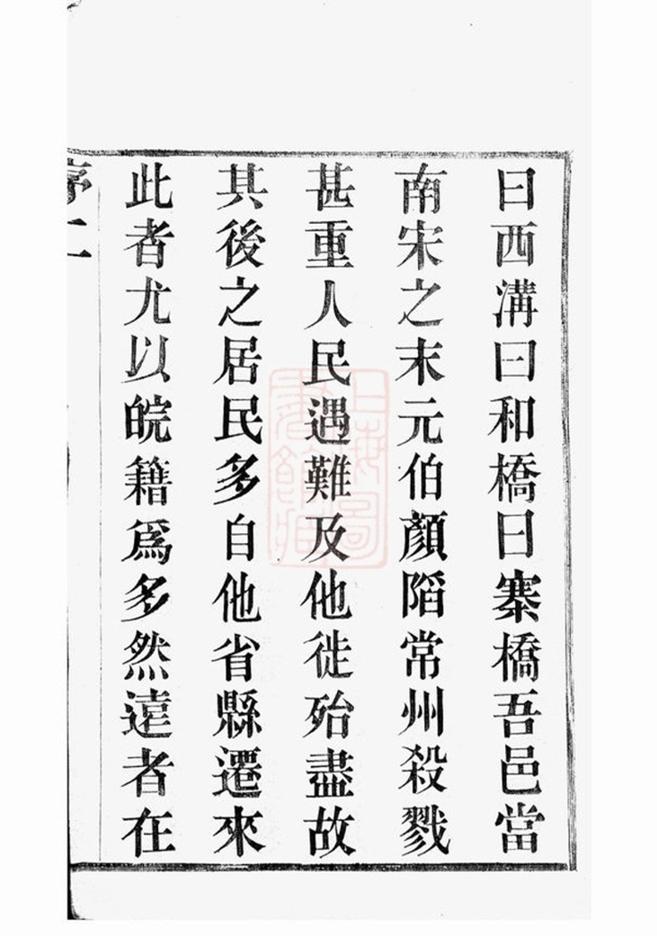 曰西溝曰和橋曰寨橋吾邑當
南宋之末元伯顏陷常州殺戮
甚重人民遇難及他徙殆盡故
其後之居民多自他省縣遷來
此者尤以皖籍爲多然遠者在
序二
上海圖
書館藏